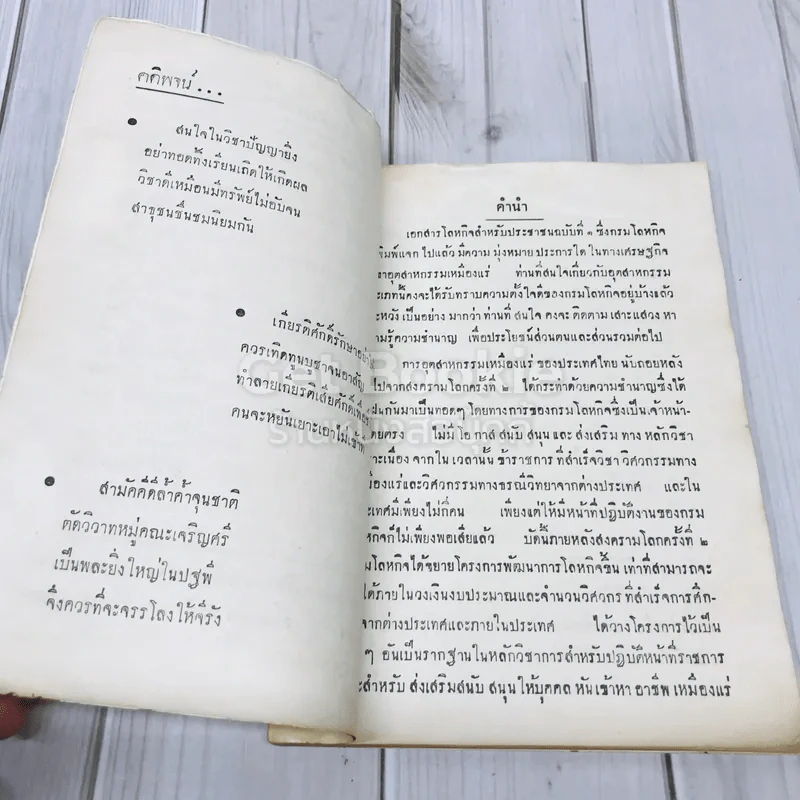 คติพจน์ ...
สนใจในวิชาปัญญายิ่ง
อย่าทอดทิ้งเรียนเถิดให้เกิดผล
วิชาดีเหมือนมีทรัพย์ไม่อับจน
สาธุชนชื่นชมนิยมกัน
เกียรติศักดิ์รักษาอย่า
ควรเทิดทูนบูชาจนอาสัญ
ทำลายเกียรติเสียศักดิ์
คนจะหยันเยาะเอาไม่เข้า
สามัคคีดีล้ำค้ำจุนชาติ
ตัดวิวาทหมู่คณะเจริญศรี
เป็นพละยิ่งใหญ่ในปฐพี
จึงควรที่จะจรรโลงให้จีรัง
คำนำ
เอกสารโลหกิจสำหรับประชาชนฉบับที่ ๑ ซึ่งกรมโลหกิจ
พิมพ์แจกไปแล้ว มีความมุ่งหมายประการใด ในทางเศรษฐกิจ
อุตสาหกรรมเหมืองแร่ ท่านที่สนใจเกี่ยวกับอุตสาหกรรม
เภทนี้คงจะได้รับทราบความตั้งใจดีของกรมโลหกิจอยู่บ้างแล้ว
ะหวังเป็นอย่างมากว่า ท่านที่สนใจ คงจะติดตาม เสาะแสวงหา
ามรู้ความชำนาญ เพื่อประโยชน์ส่วนตนและส่วนรวมต่อไป
การอุตสาหกรรมเหมืองแร่ ของประเทศไทย นับถอยหลัง
ไปจากสงครามโลกครั้งที่ ๒ ได้กระทำด้วยความชำนาญซึ่งได้
กันมาเป็นทอดๆ โดยทางการของกรมโลหกิจซึ่งเป็นเจ้าหน้า-
ดยตรง ไม่มีโอกาสสนับสนุนและส่งเสริมทางหลักวิชา
าะเนื่องจากในเวลานั้น ข้าราชการที่สำเร็จวิชาวิศวกรรมทาง
องแร่และวิศวกรรมทางธรณีวิทยาจากต่างประเทศ และใน
ทศมีเพียงไม่กี่คน เพียงแต่ให้มีหน้าที่ปฏิบัติงานของกรม
กิจก็ไม่เพียงพอเสียแล้ว บัดนี้ภายหลังสงครามโลกครั้งที่ ๒
มโลหกิจได้ขยายโครงการพัฒนาการโลหกิจขึ้น เท่าที่สามารถจะ
ได้ภายในวงเงินงบประมาณและจำนวนวิศวกรที่สำเร็จการศึก-
จากต่างประเทศและภายในประเทศ ได้วางโครงการไว้เป็น
ๆ อันเป็นรากฐานในหลักวิชาการสำหรับปฏิบัติหน้าที่ราชการ
ะสำหรับส่งเสริมสนับสนุนให้บุคคลหันเข้าหาอาชีพเหมืองแร่
Get Bookie
ร้านหนังสือบุ๊คกี้